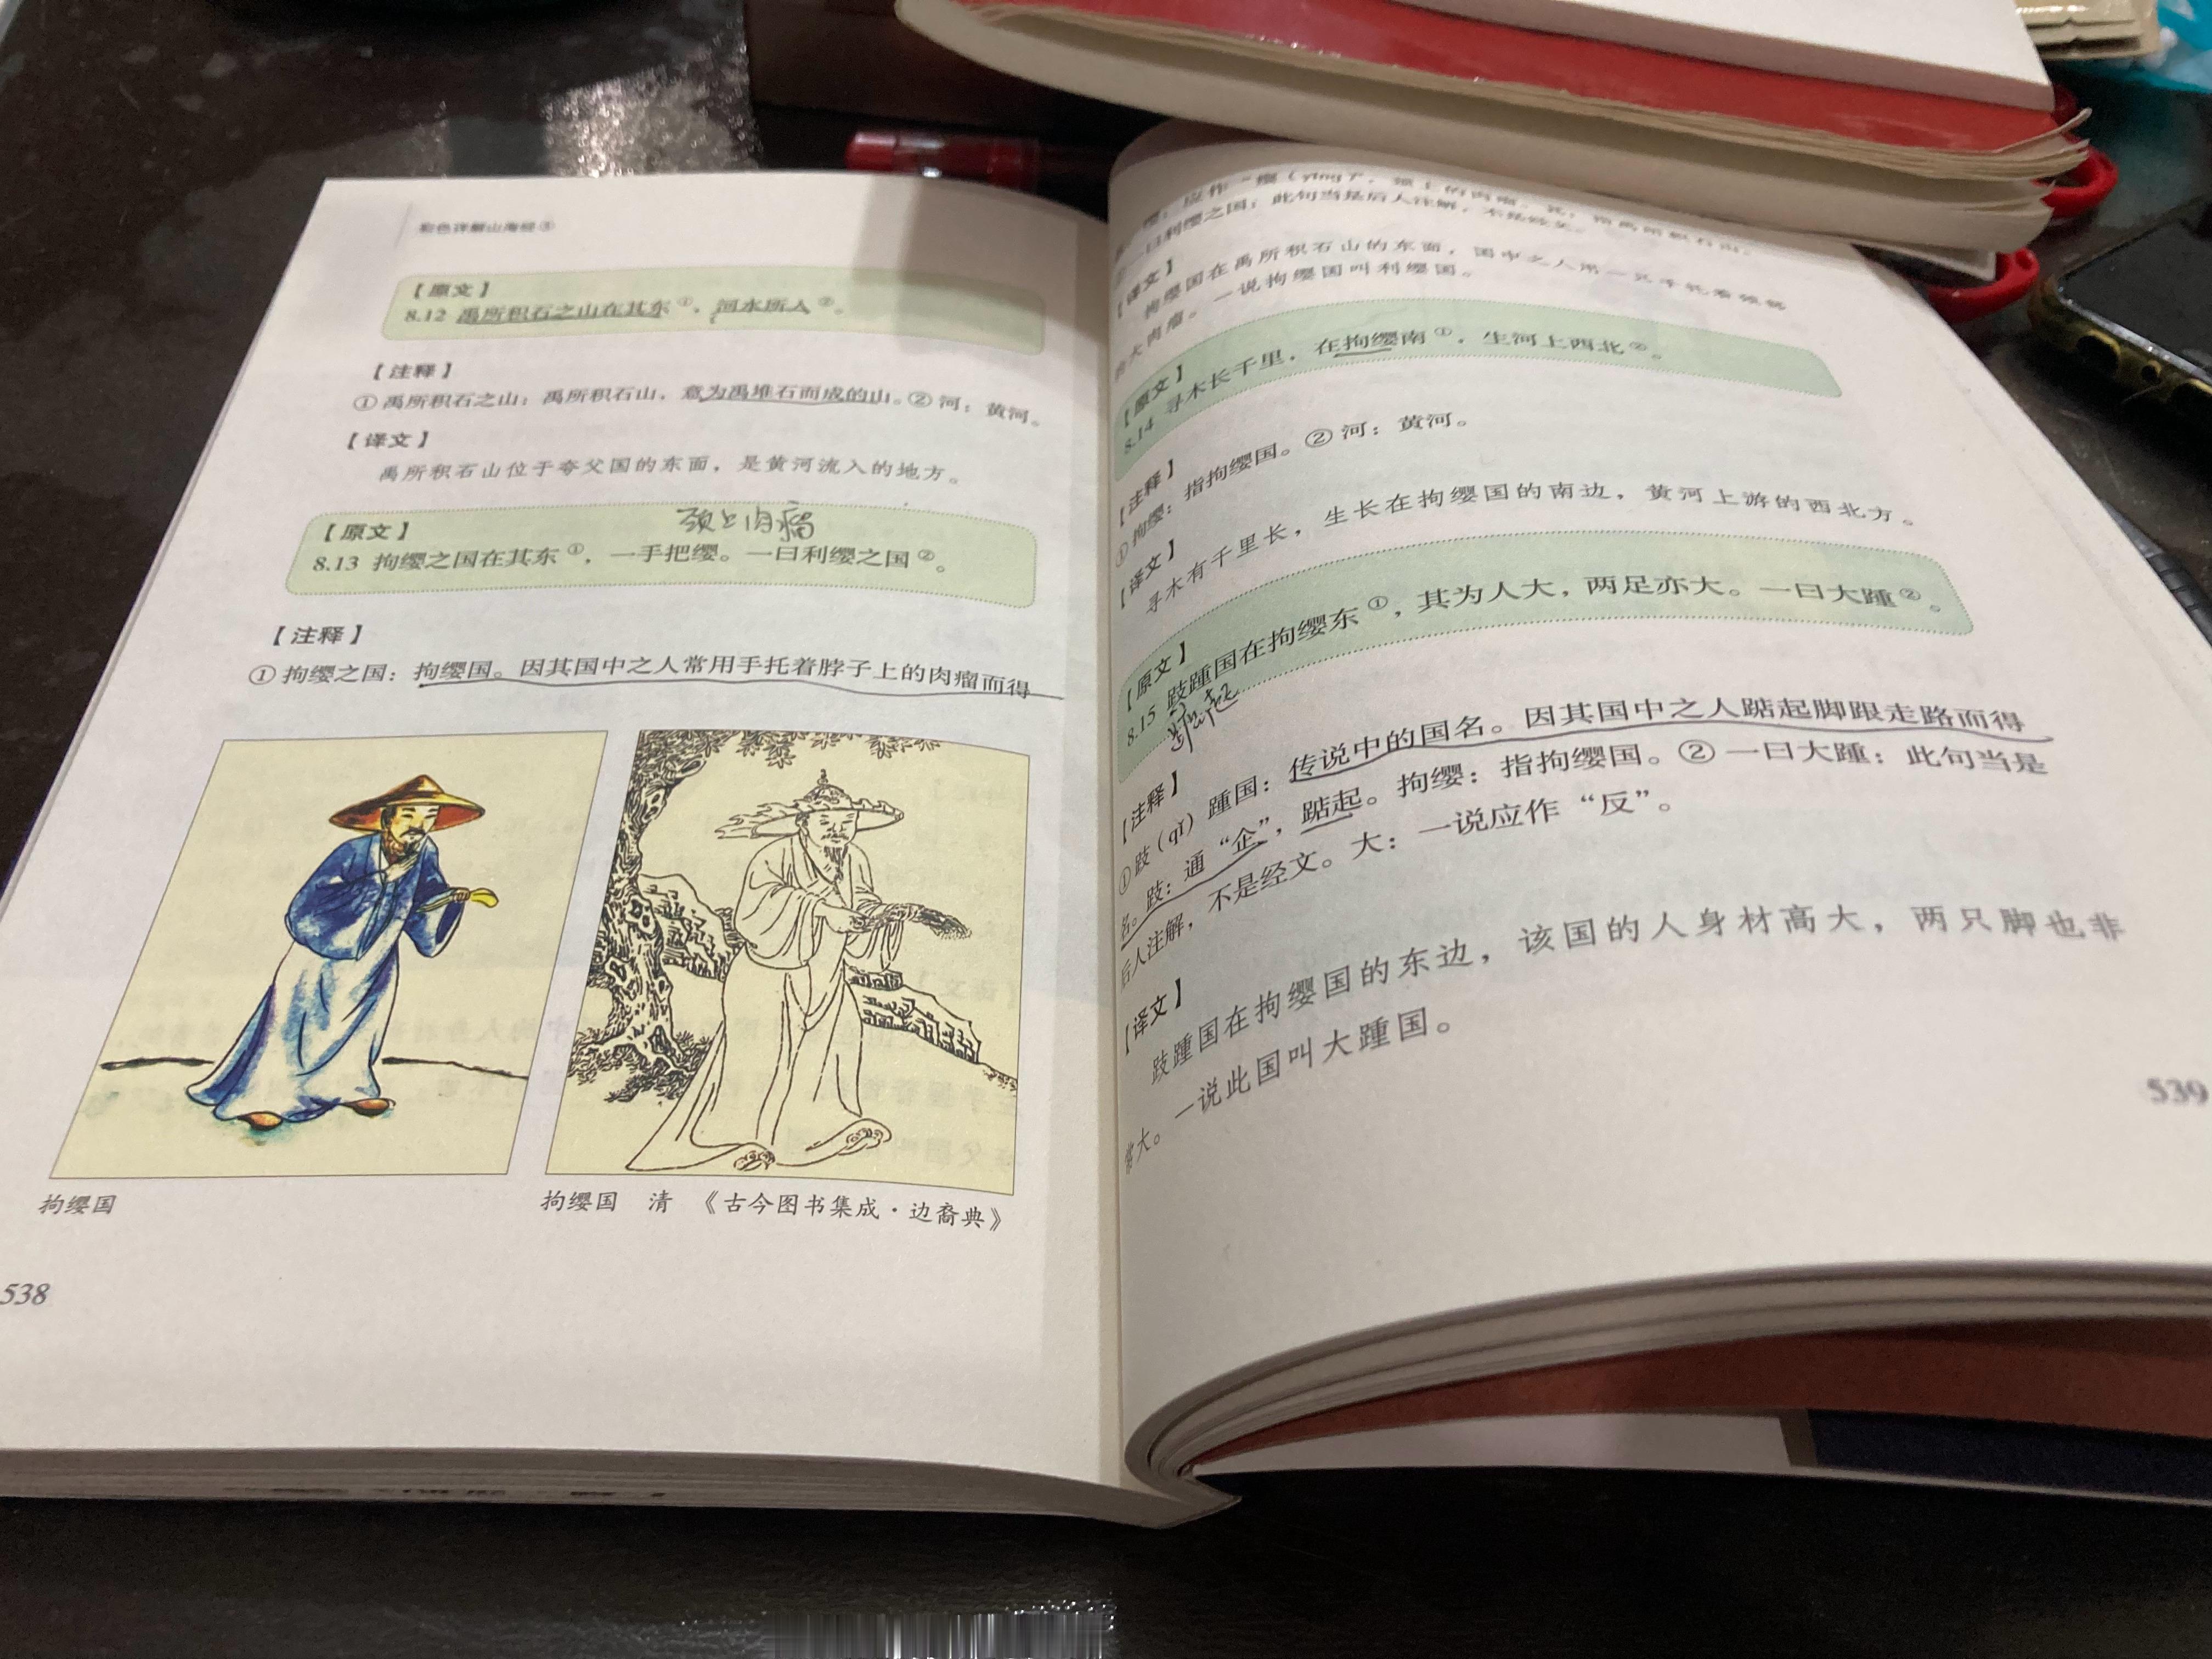 彩色详解山海经③
【原文】
8.12 禹所积石之山在其东①，河水所入②。
【注释】
①禹所积石之山：禹所积石山，意为禹堆石而成的山。②河：黄河。
【译文】
禹所积石山位于夸父国的东面，是黄河流入的地方。
颈上肉瘤
【原文】
8.13 拘缨之国在其东①，一手把缨。一曰利缨之国②。
【注释】
①拘缨之国：拘缨国。因其国中之人常用手托着脖子上的肉瘤而得
拘缨国
拘缨国 清 《古今图书集成·边裔典》
538
应作“瘿（yǐng）”，
一曰利缨之国：此句当是后人注解，不是经文。
【译文】
拘缨国在禹所积石山的东面，国中之人常一只手托着颈
大肉瘤。一说拘缨国叫利缨国。
【原文】
8.14 寻木长千里，在拘缨南①，生河上西北②。
【注释】
①拘缨：指拘缨国。②河：黄河。
【译文】
寻木有千里长，生长在拘缨国的南边，黄河上游的西北方。
【原文】
8.15 跂踵国在拘缨东①，其为人大，两足亦大。一曰大踵②。
【注释】
①跂（qǐ）踵国：传说中的国名。因其国中之人踮起脚跟走路而得
名。跂：通“企”，踮起。拘缨：指拘缨国。②一曰大踵：此句当是
后人注解，不是经文。大：一说应作“反”。
【译文】
跂踵国在拘缨国的东边，该国的人身材高大，两只脚也非
常大。一说此国叫大踵国。
539